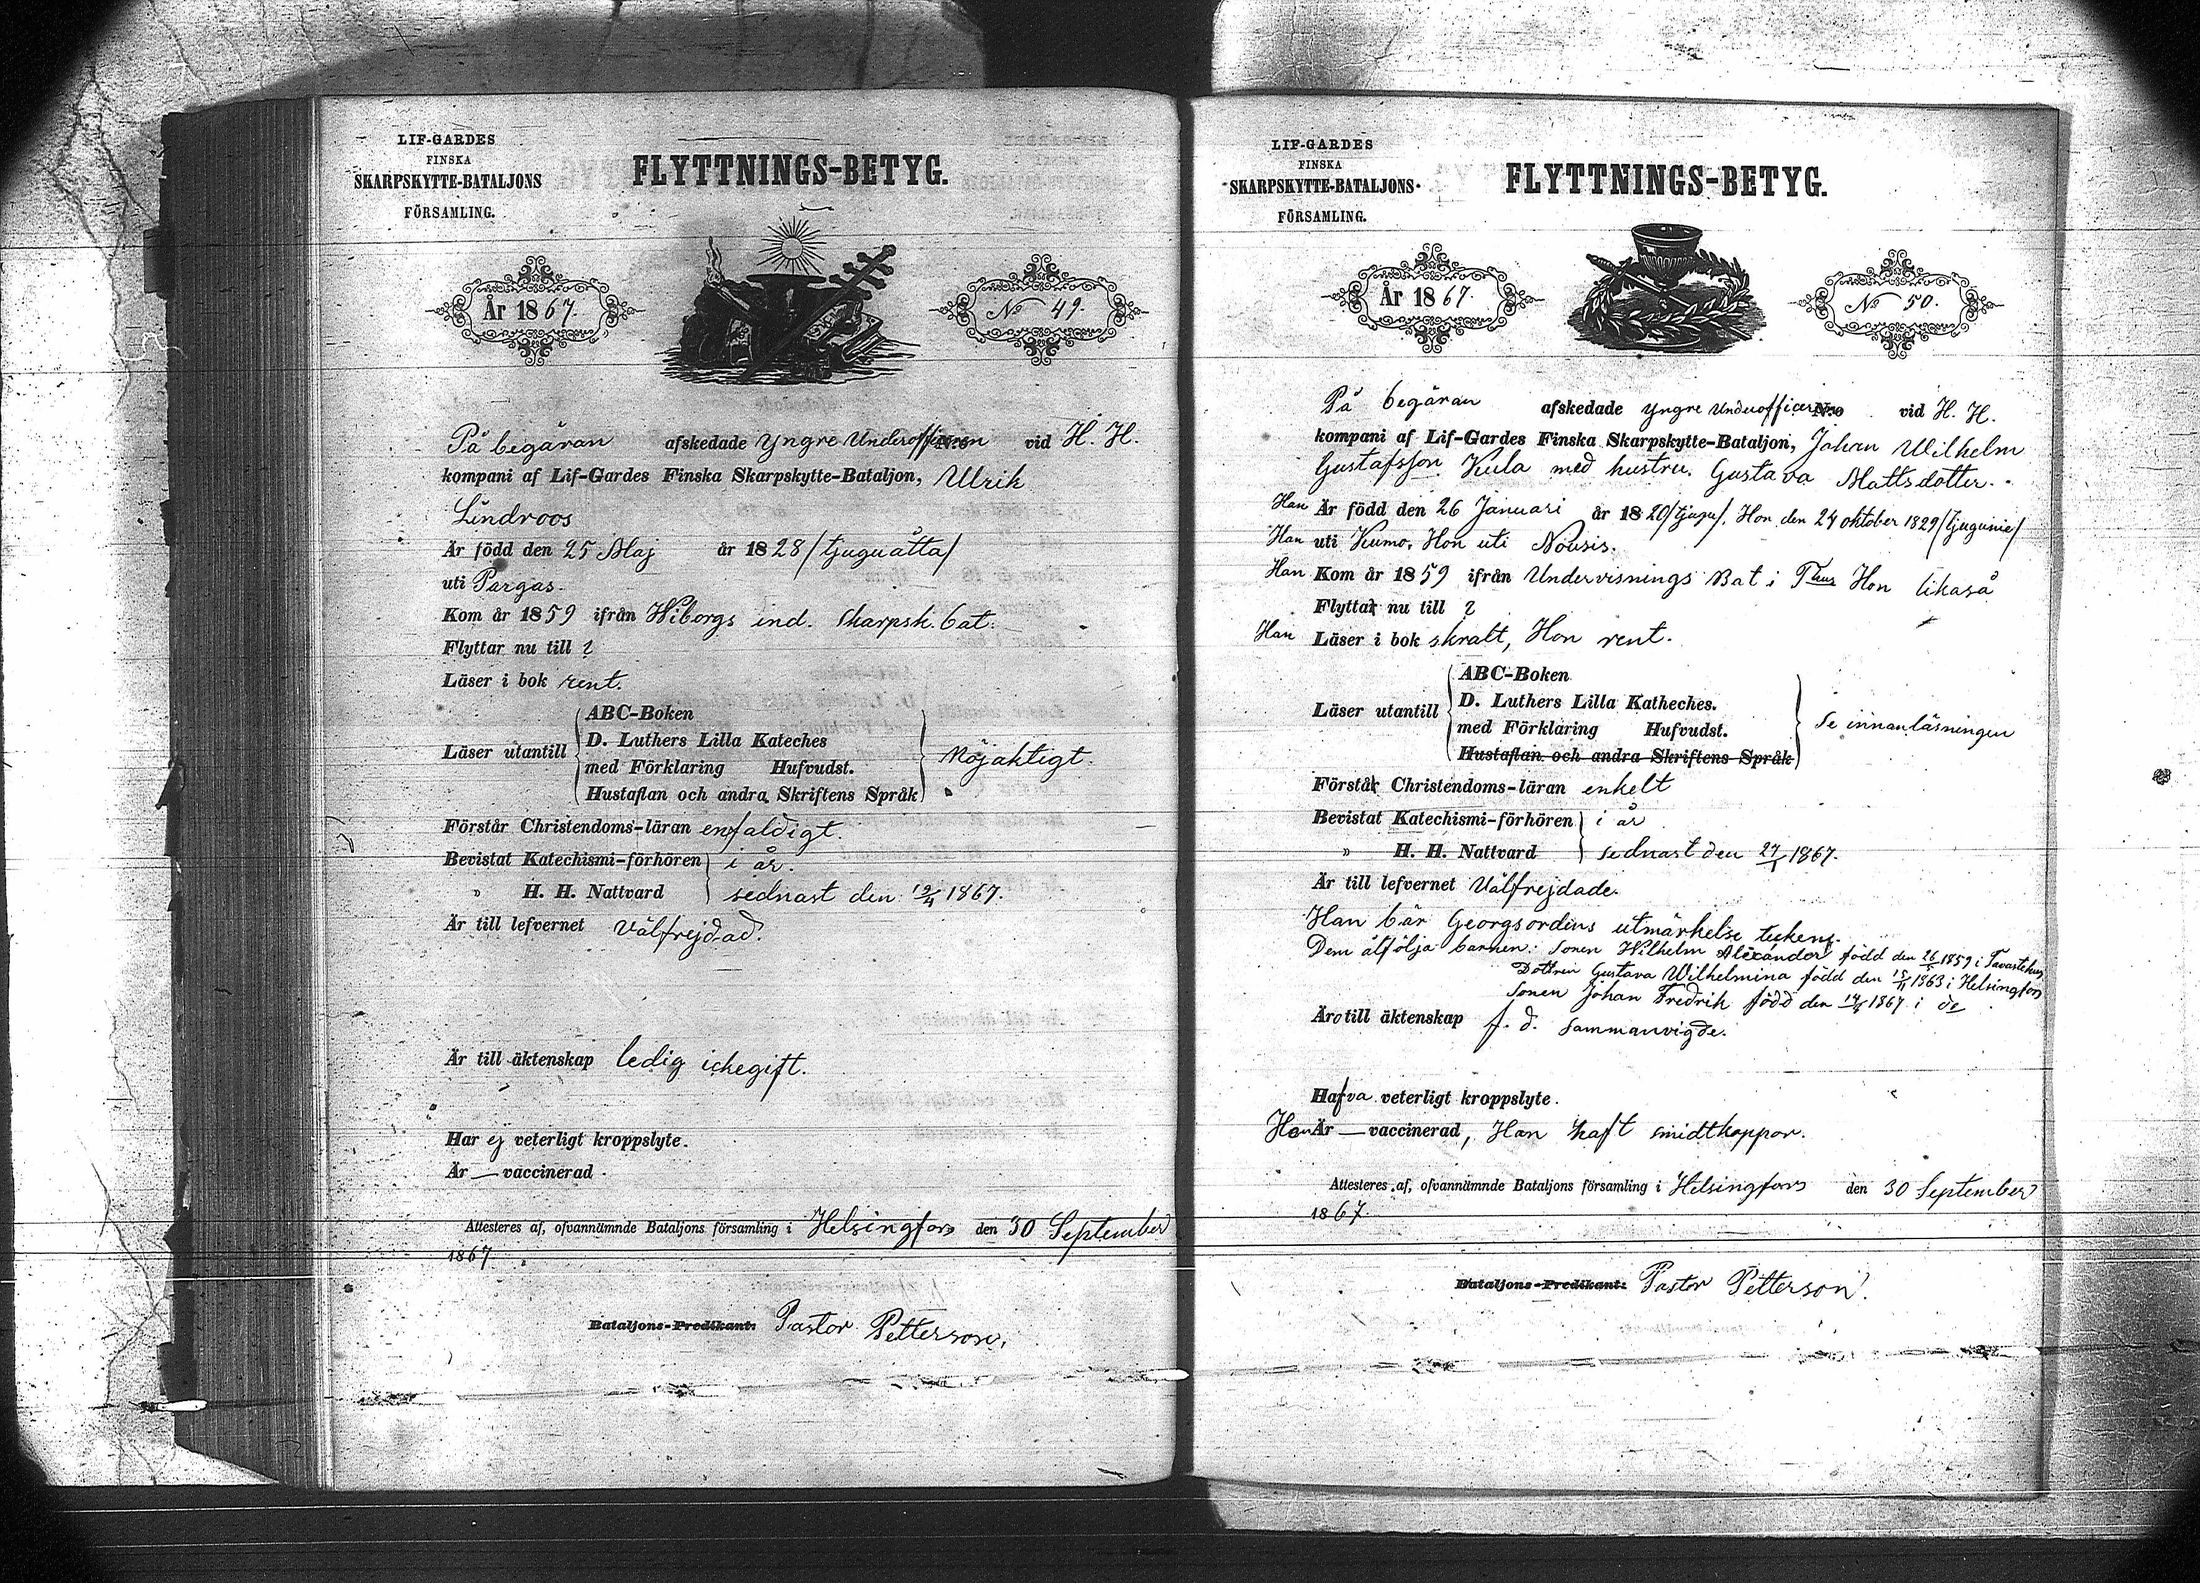 LIF-GARDES
FINSKA
SKARPSKYTTE-BATALJONS
FÖRSAMLING.
FLYTTNINGS-BETYG.
År 1867.
No 49.
På begäran afskedade Yngre Underofficeren N:o vid H. H.
kompani af Lif-Gardes Finska Skarpskytte-Bataljon, Ulrik
Lindroos
Är född den 25 Maj år 1828 /tjuguåtta/
uti Pargas.
Kom år 1859 ifrån Wiborgs ind. Skarpsk. bat.
Flyttar nu till ?
Läser i bok rent.
Läser utantill
ABC-Boken
D. Luthers Lilla Kateches
med Förklaring Hufvudst.
Hustaflan och andra Skriftens Språk
Nöjaktigt.
Förstår Christendoms-läran enfaldigt.
Bevistat Katechismi-förhören i år.
» H. H. Nattvard sednast den 19/4 1867.
Är till lefvernet Välfrejdad.
Är till äktenskap ledig ickegift.
Har ej veterligt kroppslyte.
Är — vaccinerad
Attesteres af, ofvannämnde Bataljons församling i Helsingfors den 30 September
1867
Bataljons-Predikant: Pastor Petterson.
LIF-GARDES
FINSKA
SKARPSKYTTE-BATALJONS
FÖRSAMLING.
FLYTTNINGS-BETYG.
År 1867.
No 50.
På begäran afskedade Yngre Underofficer N:o vid H. H.
kompani af Lif-Gardes Finska Skarpskytte-Bataljon, Johan Wilhelm
Gustafsson Kula med hustru. Gustava Mattsdotter.
Han Är född den 26 Januari år 1820 /tjugu/. Hon den 24 oktober 1829 /tjugunie/
Han uti Kumo. Hon uti Nousis.
Han Kom år 1859 ifrån Undervisnings Bat i Thus Hon likaså
Flytta nu till ?
Han Läser i bok skralt, Hon rent.
Läser utantill
ABC-Boken
D. Luthers Lilla Katheches.
med Förklaring Hufvudst.
Hustaflan och andra Skriftens Språk
Se innanläsningen
Förstå Christendoms-läran enkelt
Bevistat Katechismi-förhören i år
» H. H. Nattvard sednast den 27/1 1867.
Är till lefvernet Välfrejdade.
Han bär Georgsordens utmärkelse tecken.
Dem åtfölja barnen: sonen Wilhelm Alexander född den 26/5 1859 i Tavastehus
Dottren Gustava Wilhelmina född den 15/11 1863 i Helsingfors
sonen Johan Fredrik född den 14/4 1867 i do
Äro till äktenskap f. d. sammanvigde.
Hafva veterligt kroppslyte.
Hon Är — vaccinerad, Han haft smidtkoppor.
Attesteres af, ofvannämnde Bataljons församling i Helsingfors den 30 September
1867.
Bataljons-Predikant: Pastor Petterson.